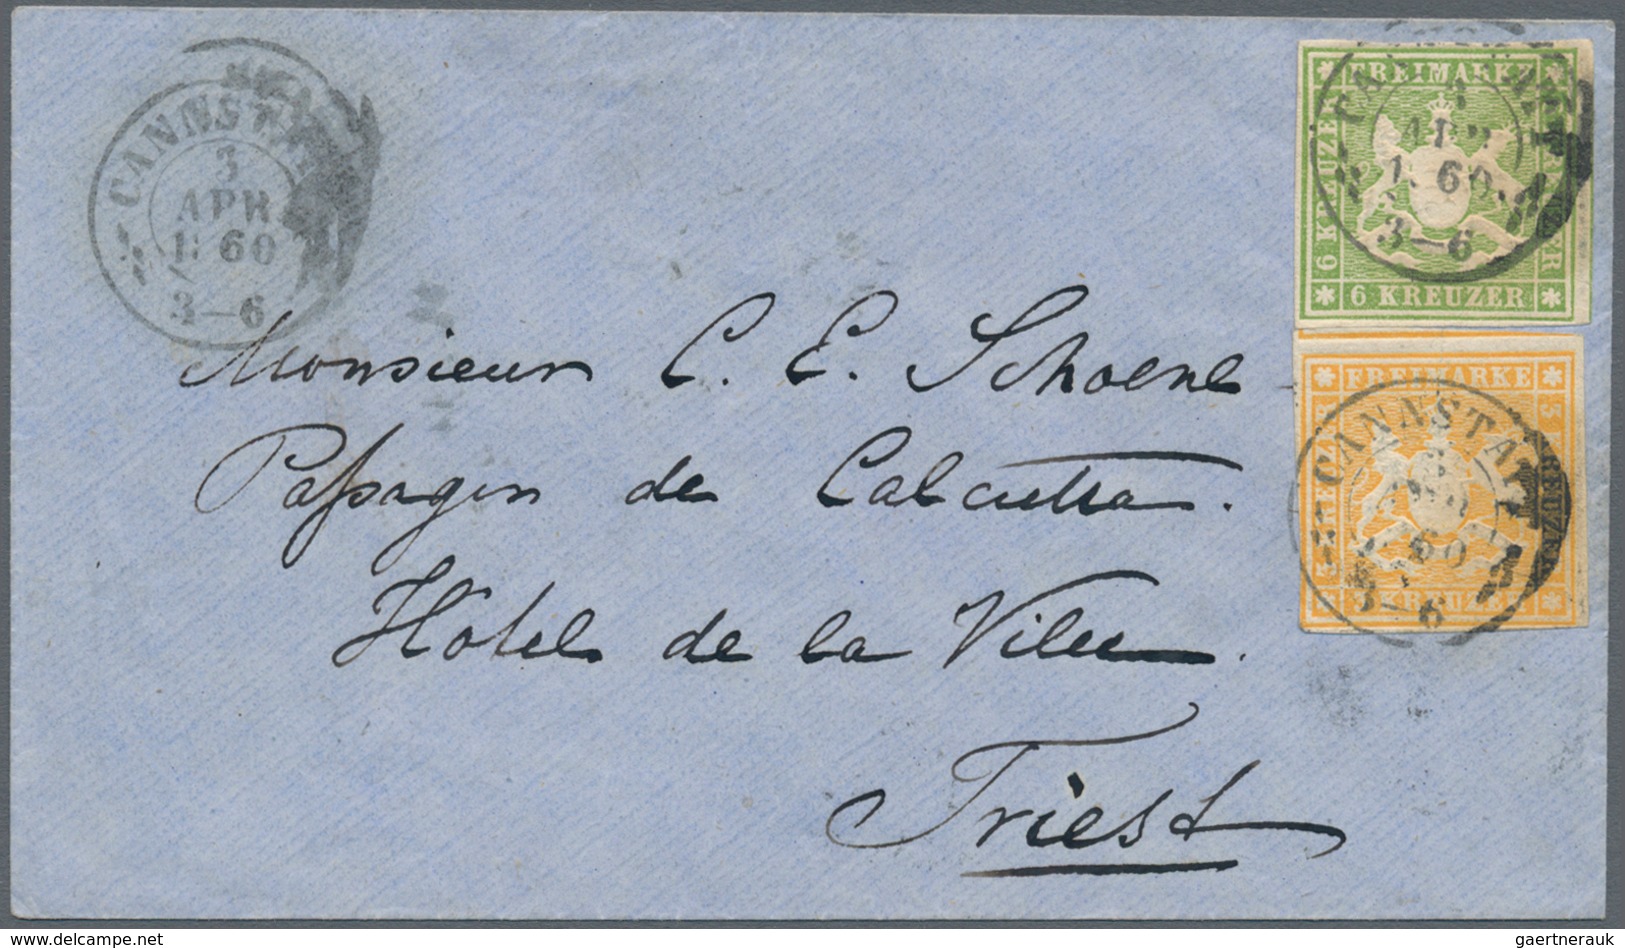 CANNSTATT
3
APR
1860
3–6
FREIMARKE
CANNSTATT
3
APR
1860
3–6
6 KREUZER
6 KREUZER
FREIMARKE
CANNSTATT
3
APR
1860
3–6
3 KREUZER
3 KREUZER
Monsieur C. E. Schoene
Passagin de Calcutta.
Hôtel de la Ville.
Triest
Delcampe.net
gaertnerauk